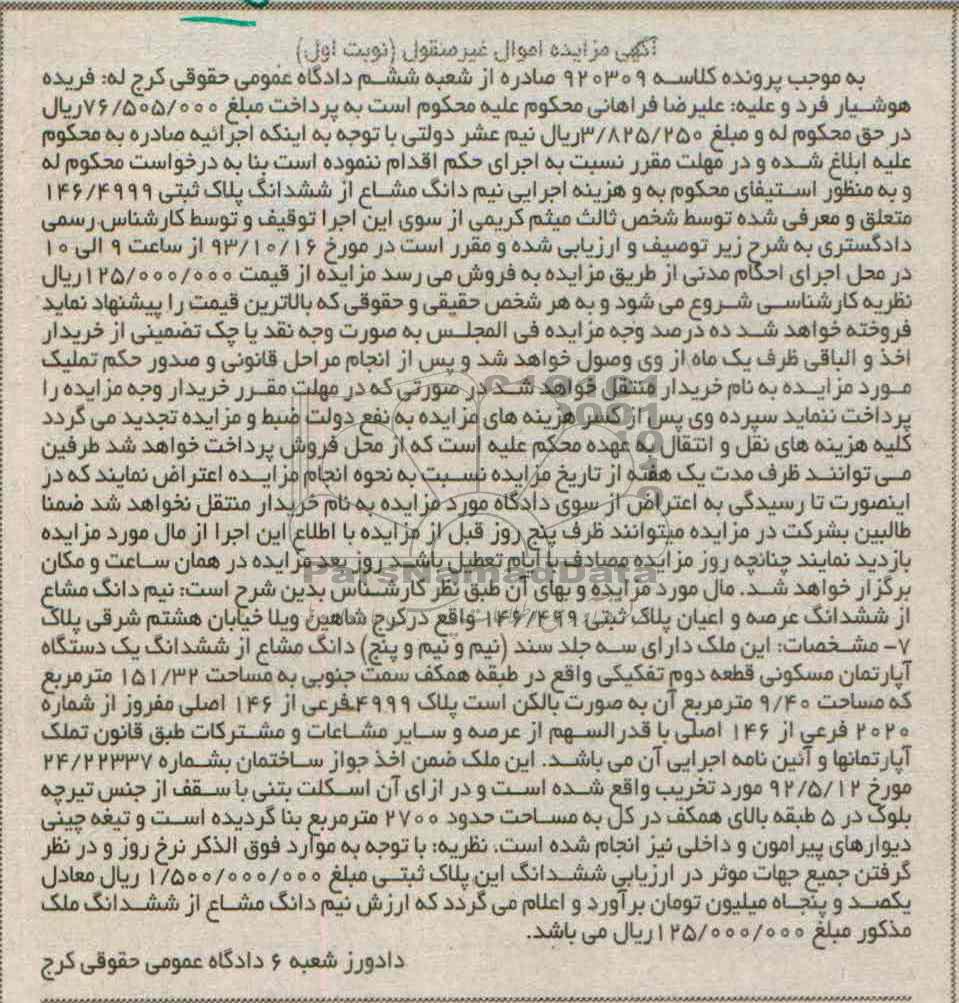 آگهی مزایده اموال غیرمنقول (نوبت اول)
به موجب پرونده کلاسه ۹۲۰۳۰۹ صادره از شعبه ششم دادگاه عمومی حقوقی کرج له: فریده
هوشیار فرد و علیه: علیرضا فراهانی محکوم علیه محکوم است به پرداخت مبلغ ۷۶/۵۰۵/۰۰۰ریال
در حق محکوم له و مبلغ ۳/۸۲۵/۲۵۰ریال نیم عشر دولتی با توجه به اینکه اجرائیه صادره به محکوم
علیه ابلاغ شده و در مهلت مقرر نسبت به اجرای حکم اقدام ننموده است بنا به درخواست محکوم له
و به منظور استیفای محکوم به و هزینه اجرایی نیم دانگ مشاع از ششدانگ پلاک ثبتی ۱۴۶/۴۹۹۹
متعلق و معرفی شده توسط شخص ثالث میثم کریمی از سوی این اجرا توقیف و توسط کارشناس رسمی
دادگستری به شرح زیر توصیف و ارزیابی شده و مقرر است در مورخ ۹۳/۱۰/۱۶ از ساعت ۹ الی ۱۰
در محل اجرای احکام مدنی از طریق مزایده به فروش می رسد مزایده از قیمت ۱۲۵/۰۰۰/۰۰۰ریال
نظریه کارشناسی شروع می شود و به هر شخص حقیقی و حقوقی که بالاترین قیمت را پیشنهاد نماید
فروخته خواهد شد ده درصد وجه مزایده فی المجلس به صورت وجه نقد یا چک تضمینی از خریدار
اخذ و الباقی ظرف یک ماه از وی وصول خواهد شد و پس از انجام مراحل قانونی و صدور حکم تملیک
مورد مزایده به نام خریدار منتقل خواهد شد در صورتی که در مهلت مقرر خریدار وجه مزایده را
پرداخت ننماید سپرده وی پس از کسر هزینه های مزایده به نفع دولت ضبط و مزایده تجدید می گردد
کلیه هزینه های نقل و انتقال به عهده محکم علیه است که از محل فروش پرداخت خواهد شد طرفین
می توانند ظرف مدت یک هفته از تاریخ مزایده نسبت به نحوه انجام مزایده اعتراض نمایند که در
اینصورت تا رسیدگی به اعتراض از سوی دادگاه مورد مزایده به نام خریدار منتقل نخواهد شد ضمنا
طالبین بشرکت در مزایده میتوانند ظرف پنج روز قبل از مزایده با اطلاع این اجرا از مال مورد مزایده
بازدید نمایند چنانچه روز مزایده مصادف با ایام تعطیل باشد روز بعد مزایده در همان ساعت و مکان
برگزار خواهد شد. مال مورد مزایده و بهای آن طبق نظر کارشناس بدین شرح است: نیم دانگ مشاع
از ششدانگ عرصه و اعیان پلاک ثبتی ۱۴۶/۴۹۹ واقع در کرج شاهین ویلا خیابان هشتم شرقی پلاک
۷- مشخصات: این ملک دارای سه جلد سند (نیم و نیم و پنج) دانگ مشاع از ششدانگ یک دستگاه
آپارتمان مسکونی قطعه دوم تفکیکی واقع در طبقه همکف سمت جنوبی به مساحت ۱۵۱/۳۲ مترمربع
که مساحت ۹/۴۰ مترمربع آن به صورت بالکن است پلاک ۴۹۹۹فرعی از ۱۴۶ اصلی مفروز از شماره
۲۰۲۰ فرعی از ۱۴۶ اصلی با قدرالسهم از عرصه و سایر مشاعات و مشترکات طبق قانون تملک
آپارتمانها و آئین نامه اجرایی آن می باشد. این ملک ضمن اخذ جواز ساختمان بشماره ۲۴/۲۲۳۳۷
مورخ ۹۲/۵/۱۲ مورد تخریب واقع شده است و در ازای آن اسکلت بتنی با سقف از جنس تیرچه
بلوک در ۵ طبقه بالای همکف در کل به مساحت حدود ۲۷۰۰ مترمربع بنا گردیده است و تیغه چینی
دیوارهای پیرامون و داخلی نیز انجام شده است. نظریه: با توجه به موارد فوق الذکر نرخ روز و در نظر
گرفتن جمیع جهات موثر در ارزیابی ششدانگ این پلاک ثبتی مبلغ ۱/۵۰۰/۰۰۰/۰۰۰ ریال معادل
یکصد و پنجاه میلیون تومان برآورد و اعلام می گردد که ارزش نیم دانگ مشاع از ششدانگ ملک
مذکور مبلغ ۱۲۵/۰۰۰/۰۰۰ریال می باشد.
دادورز شعبه ۶ دادگاه عمومی حقوقی کرج
ParsNamadData